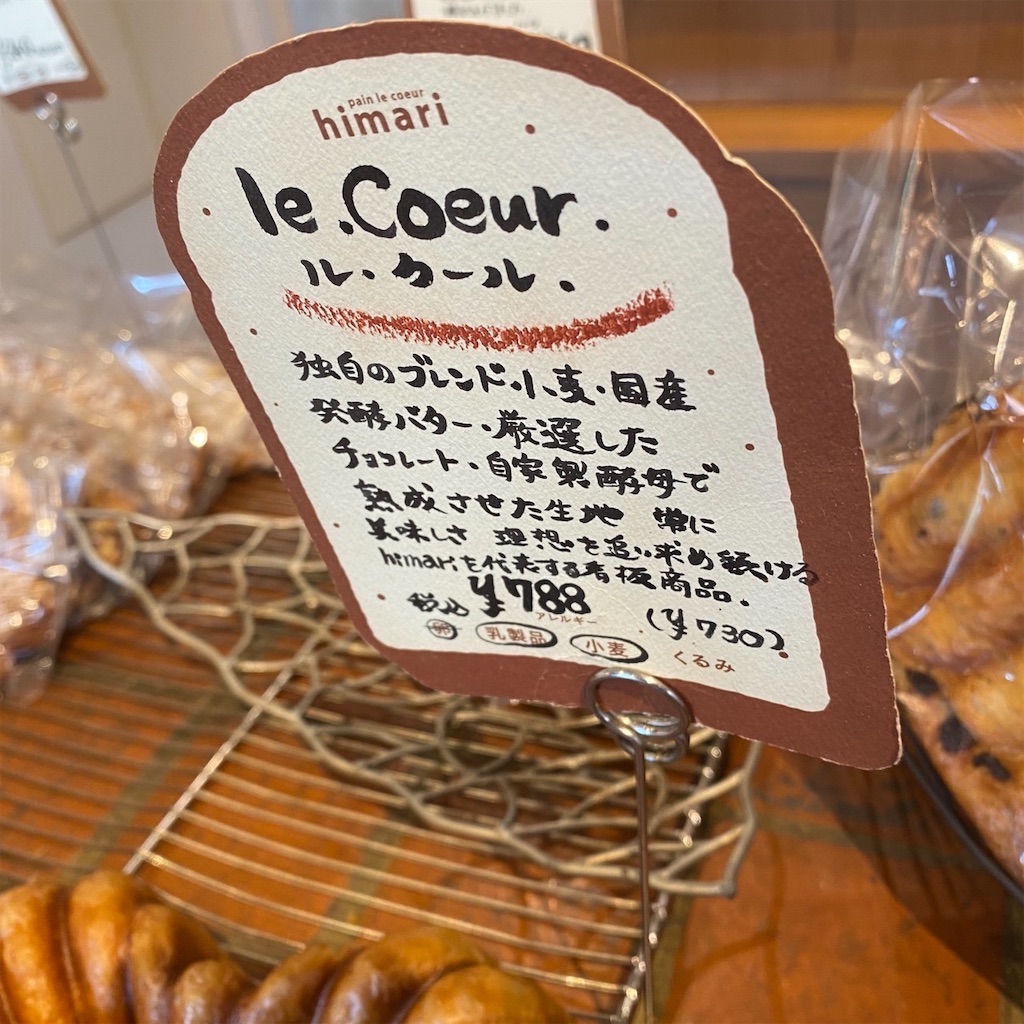 pain le coeur
himari
le.Coeur.
ル・クール.
独自のブレンド・小麦・国産
発酵バター・厳選した
チョコレート・自家製酵母で
熟成させた生地 常に
美味しさ 理想を追い求め続ける
himariを代表する看板商品.
税込 ¥788 (¥730)
アレルギー
卵 乳製品 小麦 くるみ